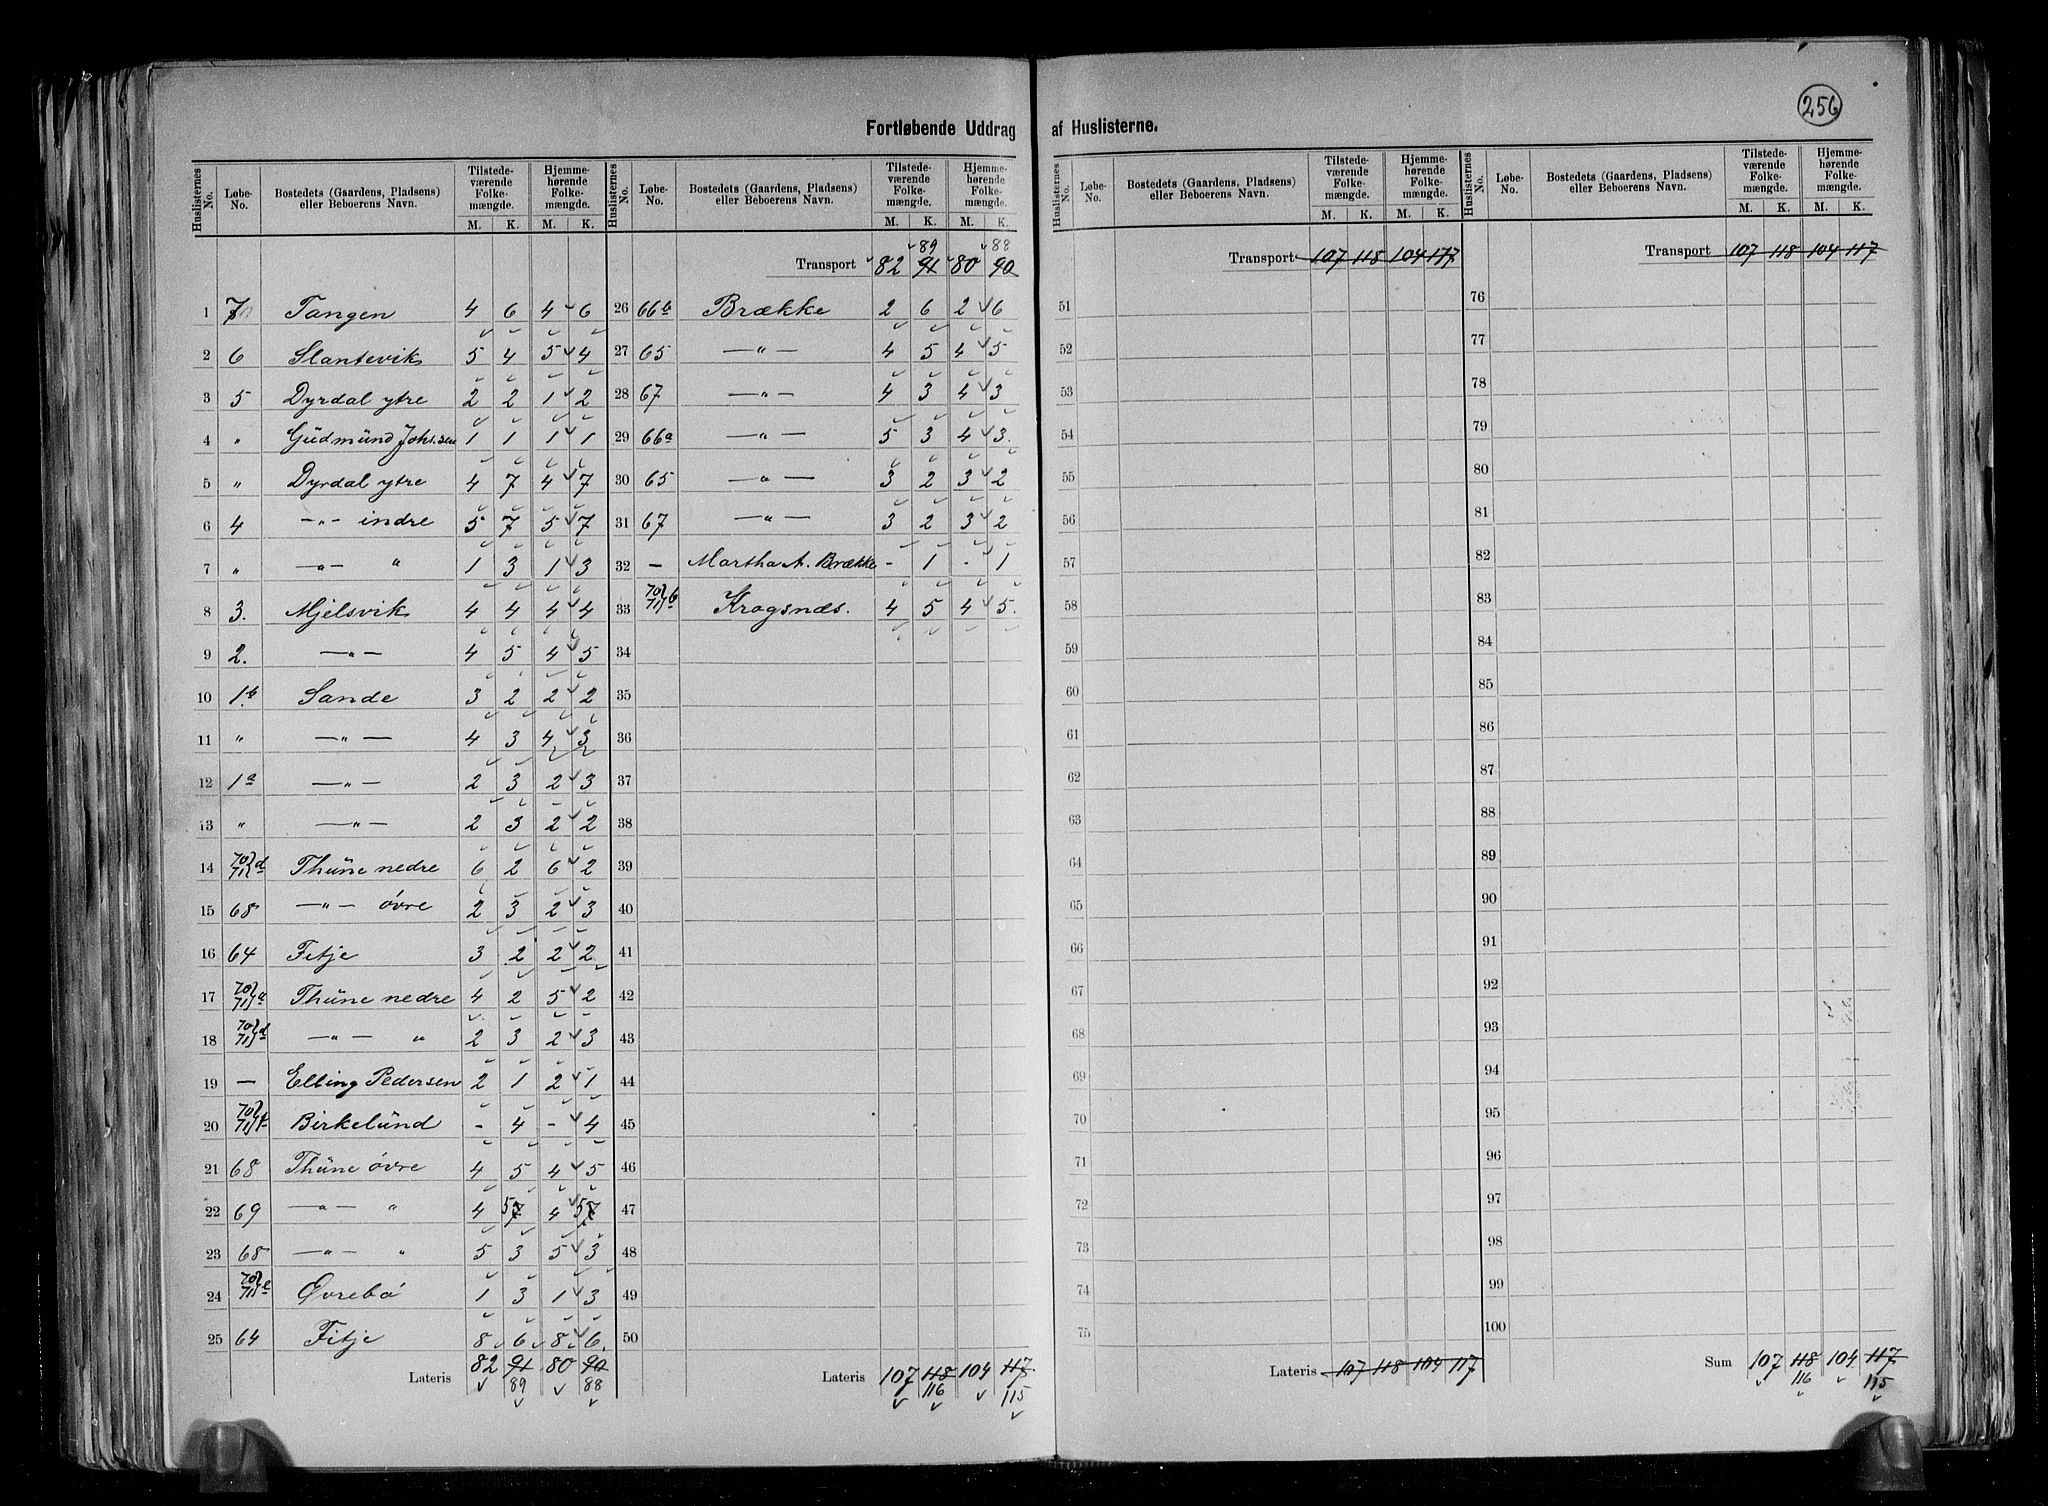 256
Fortløbende Uddrag af Huslisterne.
Huslisternes No. | Løbe-No. | Bostedets (Gaardens, Pladsens) eller Beboerens Navn. | Tilstedeværende Folkemængde. M. K. | Hjemmehørende Folkemængde. M. K.
1 7 Tangen 4 6 4 6
2 6 Slantevik 5 4 5 4
3 5 Dyrdal ytre 2 2 1 2
4 " Gudmund Johs.sen 1 1 1 1
5 " Dyrdal ytre 4 7 4 7
6 4 —"— indre 5 7 5 7
7 " —"— " 1 3 1 3
8 3. Mjelsvik 4 4 4 4
9 2. —"— 4 5 4 5
10 1b Sande 3 2 2 2
11 " —"— 4 3 4 3
12 1a —"— 2 3 2 3
13 " —"— 2 3 2 2
14 70/71 d Thune nedre 6 2 6 2
15 68 —"— övre 2 3 2 3
16 64 Fitje 3 2 2 2
17 70/71 a Thune nedre 4 2 5 2
18 70/71 d —"— " 2 3 2 3
19 — Elling Pedersen 2 1 2 1
20 70/71 Birkelund - 4 - 4
21 68 Thune övre 4 5 4 5
22 69 —"— " 4 5 7 4 5 7
23 68 —"— " 5 3 5 3
24 70/71 e Övrebö 1 3 1 3
25 64 Fitje 8 6 8 6.
Lateris 82 91 80 90
89 88
Huslisternes No. | Løbe-No. | Bostedets (Gaardens, Pladsens) eller Beboerens Navn. | Tilstedeværende Folkemængde. M. K. | Hjemmehørende Folkemængde. M. K.
89 88
Transport 82 91 80 90
26 66b Brække 2 6 2 6
27 65 —"— 4 5 4 5
28 67 —"— 4 3 4 3
29 66a —"— 5 3 4 3.
30 65 —"— 3 2 3 2
31 67 —"— 3 2 3 2
32 — Martha A. Brække - 1 - 1
33 70/71 b Krogsnæs. 4 5 4 5.
34
35
36
37
38
39
40
41
42
43
44
45
46
47
48
49
50
Lateris 107 118 104 117
116 115
Huslisternes No. | Løbe-No. | Bostedets (Gaardens, Pladsens) eller Beboerens Navn. | Tilstedeværende Folkemængde. M. K. | Hjemmehørende Folkemængde. M. K.
Transport 107 118 104 117
51
52
53
54
55
56
57
58
59
60
61
62
63
64
65
66
67
68
69
70
71
72
73
74
75
Lateris 107 118 104 117
Huslisternes No. | Løbe-No. | Bostedets (Gaardens, Pladsens) eller Beboerens Navn. | Tilstedeværende Folkemængde. M. K. | Hjemmehørende Folkemængde. M. K.
Transport 107 118 104 117
76
77
78
79
80
81
82
83
84
85
86
87
88
89
90
91
92
93
94
95
96
97
98
99
100
Sum 107 118 104 117
116 115